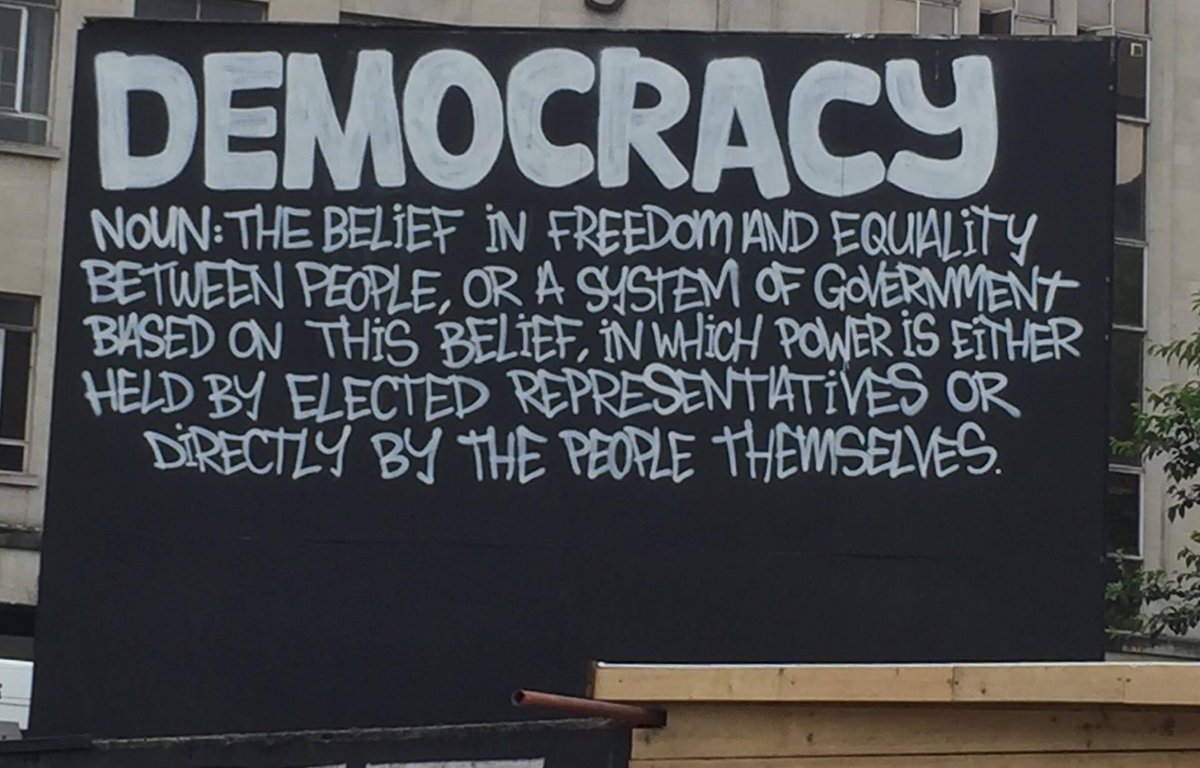 DEMOCRACY
NOUN: THE BELiEF iN FREEDOM AND EQUALiTY
BETWEEN PEOPLE, OR A SYSTEM OF GOVERNMENT
BASED ON THiS BELiEF, iN WHiCH POWER iS EiTHER
HELD BY ELECTED REPRESENTATiVES OR
DiRECTLY BY THE PEOPLE THEMSELVES.